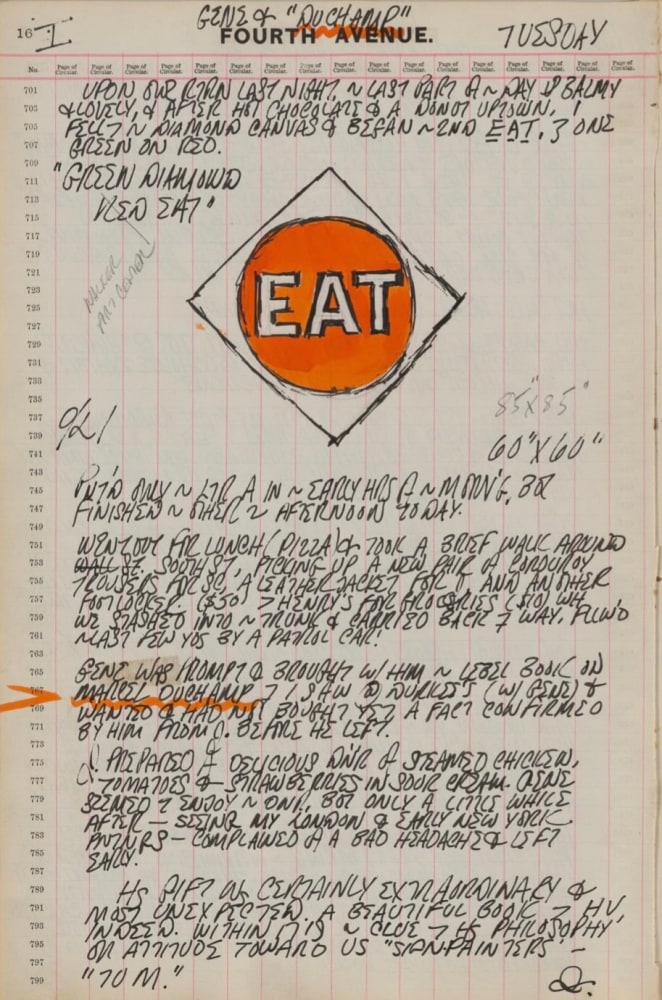 GENE & "DUCHAMP"
16 I FOURTH AVENUE. TUESDAY
No. Page of Circular. Page of Circular. Page of Circular. Page of Circular. Page of Circular. Page of Circular. Page of Circular. Page of Circular. Page of Circular. Page of Circular. Page of Circular. Page of Circular. Page of Circular. Page of Circular.
701 UPON OUR LAST NIGHT, ~ LAST PART ~ DAY BALMY
703 & LOVELY, & AFTER HOT CHOCOLATE & A DONUT UPTOWN, I
705 FELL ~ DIAMOND CANVAS & BEGAN ~ 2ND EAT, ONE
707 GREEN ON RED.
709
711 "GREEN DIAMOND
713 RED EAT"
715
717
719 WALKER
721 ART CENTER
EAT
723
725
727
729
731
733
735 85"X85"
737
739 60"X60"
741
743
745 PNT'D ONLY ~ LTR A IN ~ EARLY HRS ~ MORN'G, BUT
747 FINISHED ~ OTHER 2 AFTERNOON TODAY.
749
751 WENT OUT FOR LUNCH (PIZZA) & TOOK A BRIEF WALK AROUND
753 SOUTH ST, PICKING UP A NEW PAIR CORDUROY
755 TROUSERS FOR A LEATHER JACKET FOR AND ANOTHER
757 FOOTLOCKER. ($50) HENRY'S FOR GROCERIES ($10) WH
759 WE STASHED INTO ~ TRUNK & CARRIED BACK WAY, FLLW'D
761 ~ LAST FEW YDS BY A PATROL CAR!
763
765 GENE WAS PROMPT & BROUGHT W/ HIM ~ LEBEL BOOK ON
767 MARCEL DUCHAMP I SAW @ (W/ GENE) &
769 WANTED & HAD NOT BOUGHT YET A FACT CONFIRMED
771 BY HIM FROM BEFORE HE LEFT.
773
775 PREPARED DELICIOUS DNR STEAMED CHICKEN,
777 TOMATOES & STRAWBERRIES IN SOUR CREAM. GENE
779 SEEMED ENJOY ~ DNR, BUT ONLY A LITTLE WHILE
781 AFTER — SEEING MY LONDON & EARLY NEW YORK
783 PNTNGS — COMPLAINED A BAD HEADACHE & LEFT
785 EARLY.
787
789 HS GIFT WS CERTAINLY EXTRAORDINARY &
791 MOST UNEXPECTED. A BEAUTIFUL BOOK HV,
793 INDEED. WITHIN ~ CLUE HS PHILOSOPHY,
795 OR ATTITUDE TOWARD US "SIGNPAINTERS" —
797
799 "TU M."